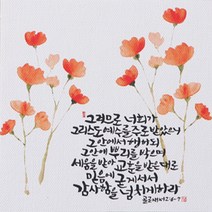 그러므로 너희가
그리스도 예수를 주로 받았으니
그 안에서 행하되
그 안에 뿌리를 박으며
세움을 받아 교훈을 받은대로
믿음에 굳게 서서
감사함을 넘치게 하라
골로새서 2:6-7